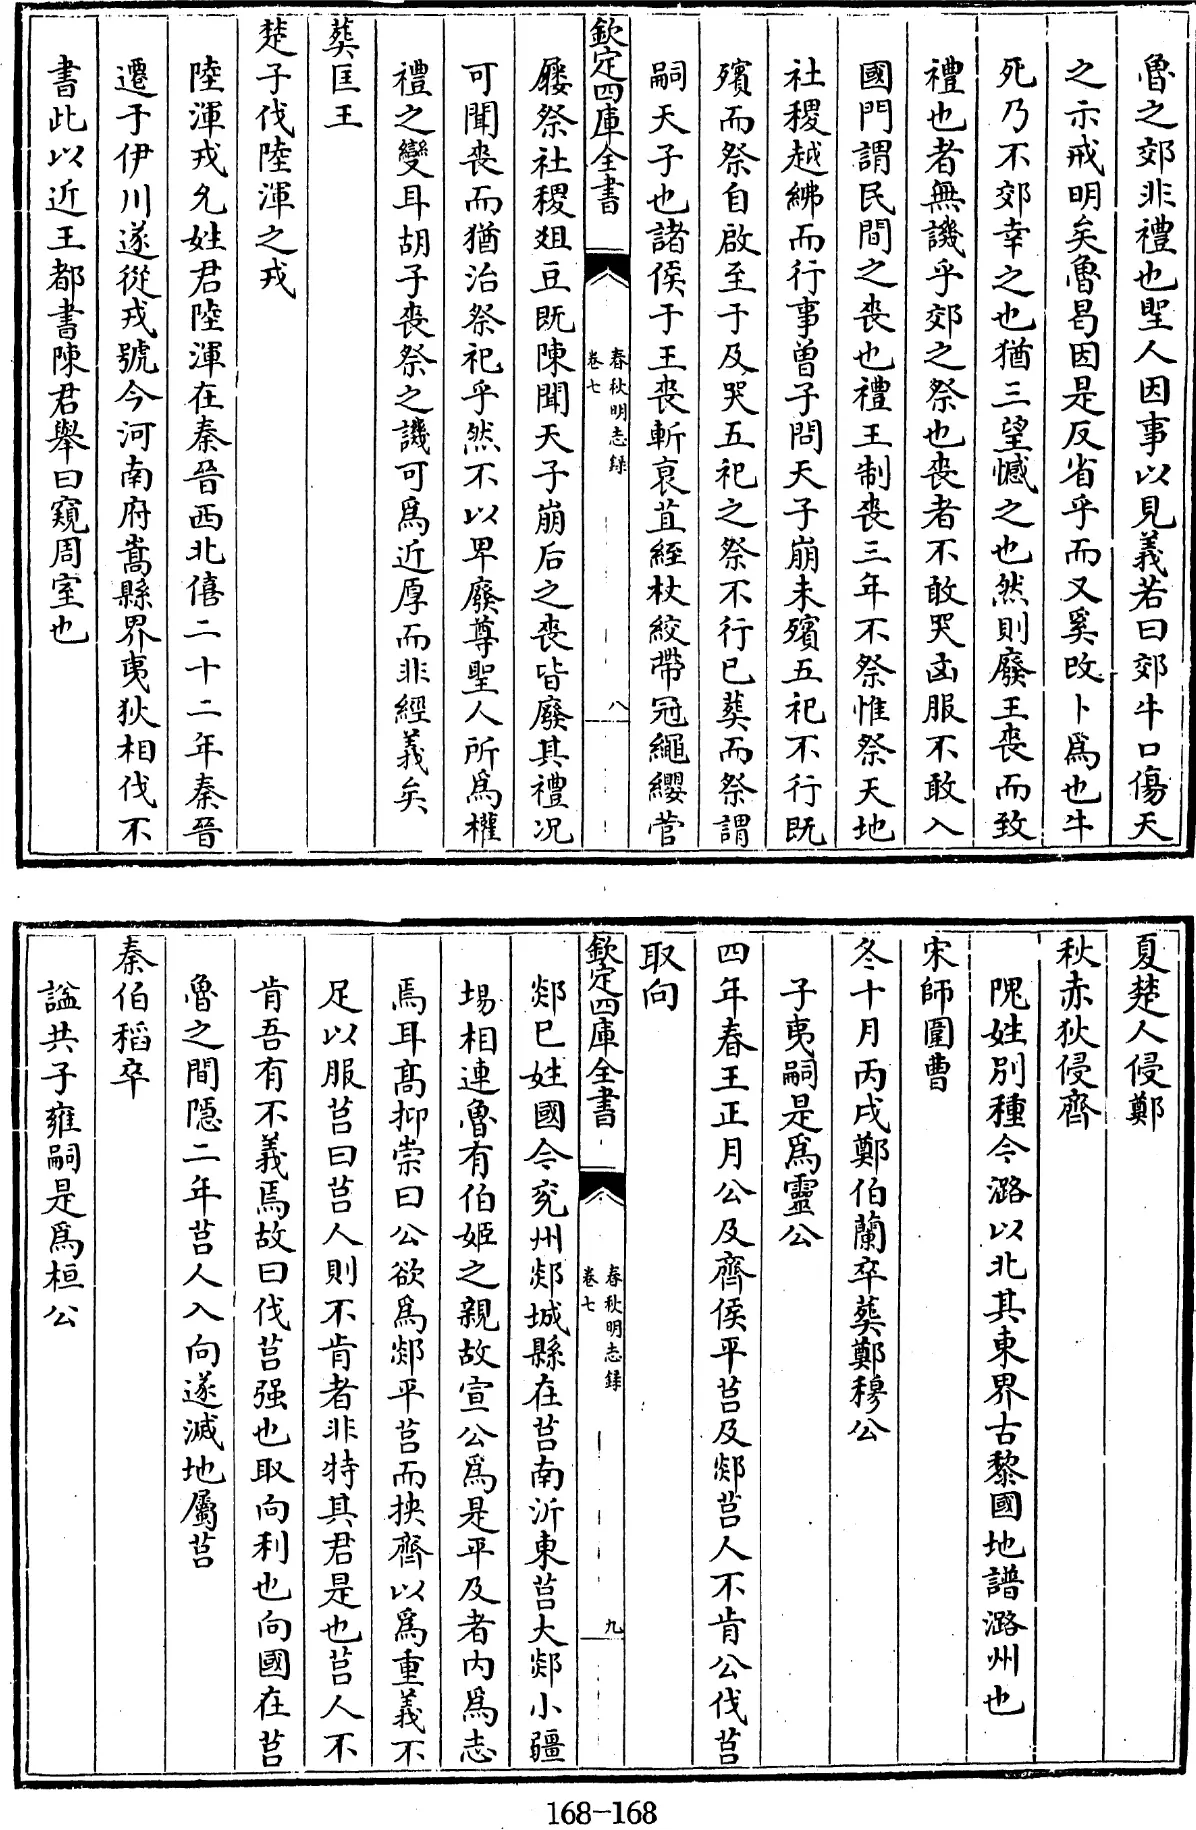 魯之郊非禮也聖人因事以見義若曰郊牛口傷天
之示戒明矣魯曷因是反省乎而又奚改卜爲也牛
死乃不郊幸之也猶三望憾之也然則廢王喪而致
禮也者無譏乎郊之祭也喪者不敢哭凶服不敢入
國門謂民間之喪也禮王制喪三年不祭惟祭天地
社稷越紼而行事曾子問天子崩未殯五祀不行既
殯而祭自啟至于及哭五祀之祭不行已葬而祭謂
嗣天子也諸侯于王喪斬衰苴絰杖絞帶冠繩纓菅
欽定四庫全書
春秋明志錄
卷七
八
屨祭社稷俎豆既陳聞天子崩后之喪皆廢其禮况
可聞喪而猶治祭祀乎然不以卑廢尊聖人所爲權
禮之變耳胡子喪祭之譏可爲近厚而非經義矣
葬匡王
楚子伐陸渾之戎
陸渾戎允姓君陸渾在秦晉西北僖二十二年秦晉
遷于伊川遂從戎號今河南府嵩縣界夷狄相伐不
書此以近王都書陳君舉曰窺周室也
夏楚人侵鄭
秋赤狄侵齊
隗姓別種今潞以北其東界古黎國地譜潞州也
宋師圍曹
冬十月丙戌鄭伯蘭卒葬鄭穆公
子夷嗣是爲靈公
四年春王正月公及齊侯平莒及郯莒人不肯公伐莒
取向
欽定四庫全書
春秋明志錄
卷七
九
郯已姓國今兖州郯城縣在莒南沂東莒大郯小疆
埸相連魯有伯姬之親故宣公爲是平及者内爲志
焉耳髙抑崇曰公欲爲郯平莒而挾齊以爲重義不
足以服莒曰莒人則不肯者非特其君是也莒人不
肯吾有不義焉故曰伐莒强也取向利也向國在莒
魯之間隱二年莒人入向遂滅地屬莒
秦伯稻卒
諡共子雍嗣是爲桓公
168-168